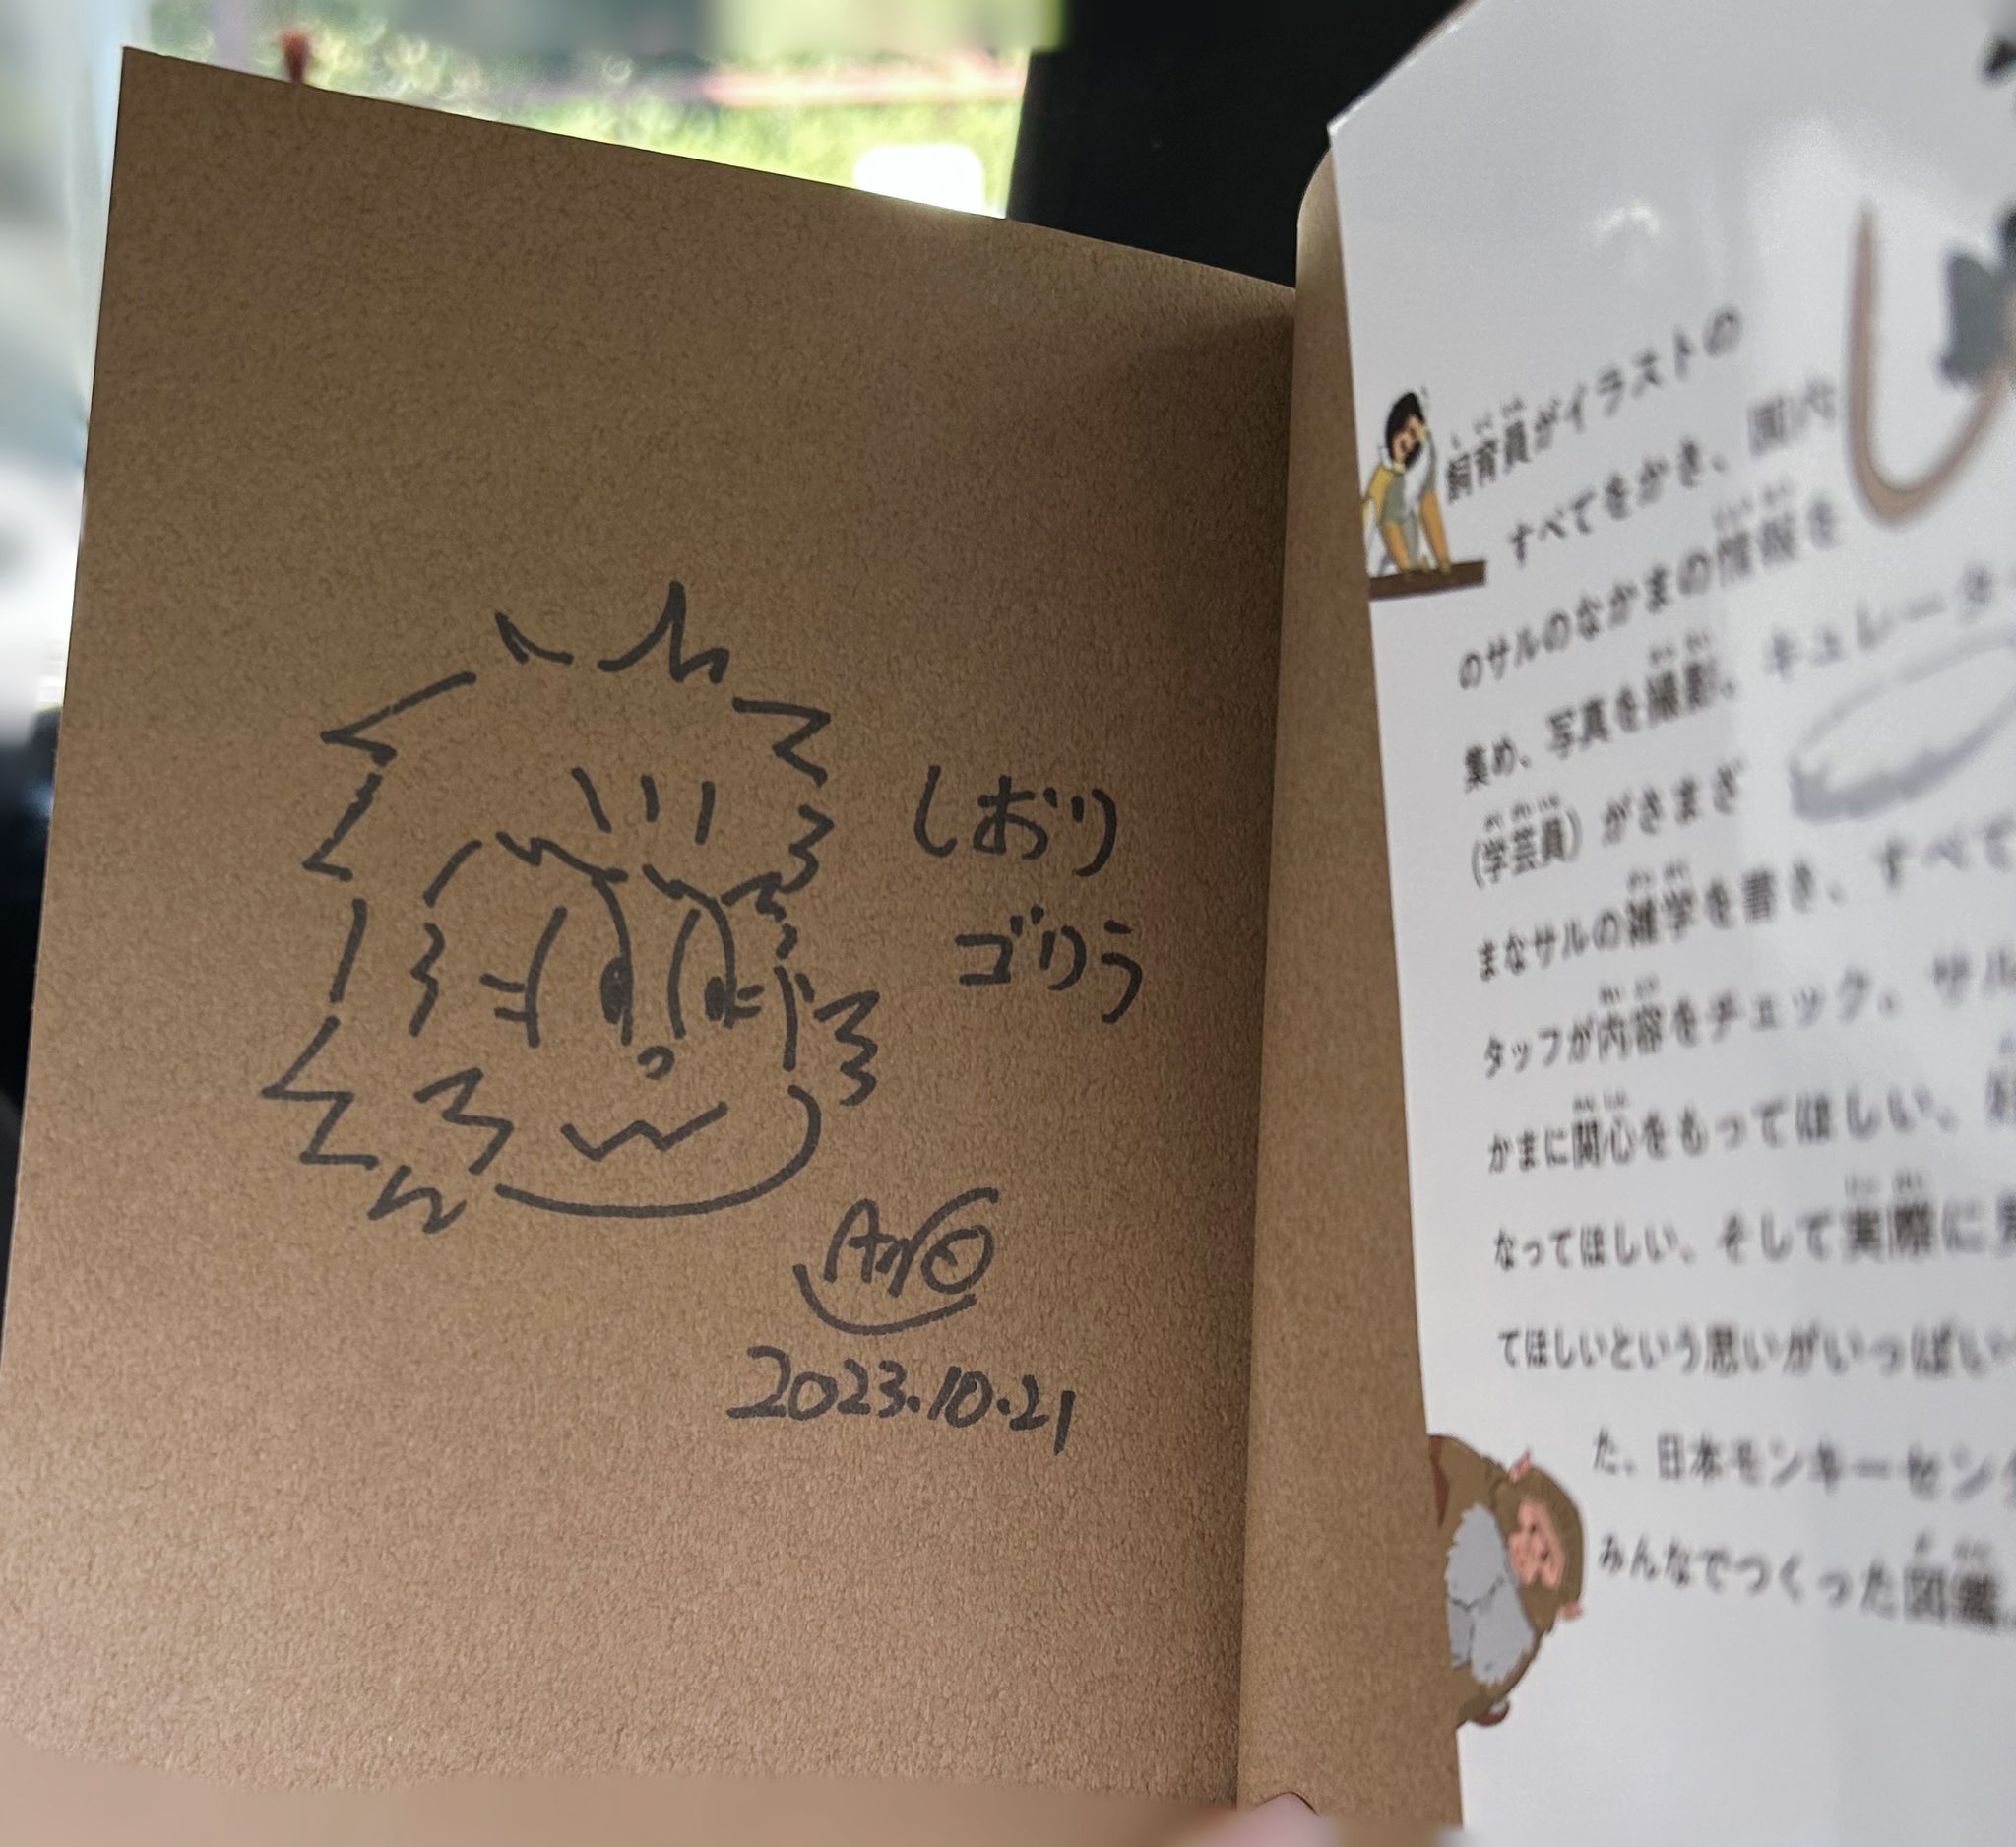 しおり
ゴリラ
2023.10.21
飼育員がイラストの
すべてをかき、国内
のサルのなかまの情報を
集め、写真を撮影、キュレータ
(学芸員)がさまざ
まなサルの雑学を書き、すべて
タッフが内容をチェック。サル
かまに関心をもってほしい、
なってほしい、そして実際に
てほしいという思いがいっぱい
た、日本モンキーセン
みんなでつくった図鑑